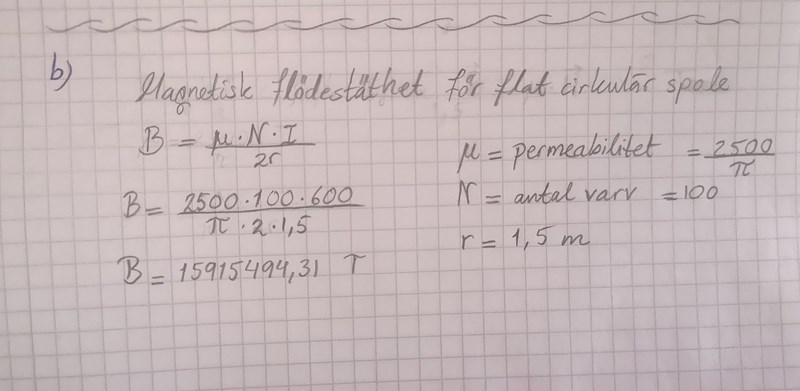 b)
Magnetisk flödestäthet för flat cirkulär spole
B = μ·N·I / 2r
μ = permeabilitet = 2500 / π
B = 2500·100·600 / π·2·1,5
N = antal varv = 100
r = 1,5 m
B = 15915494,31 T